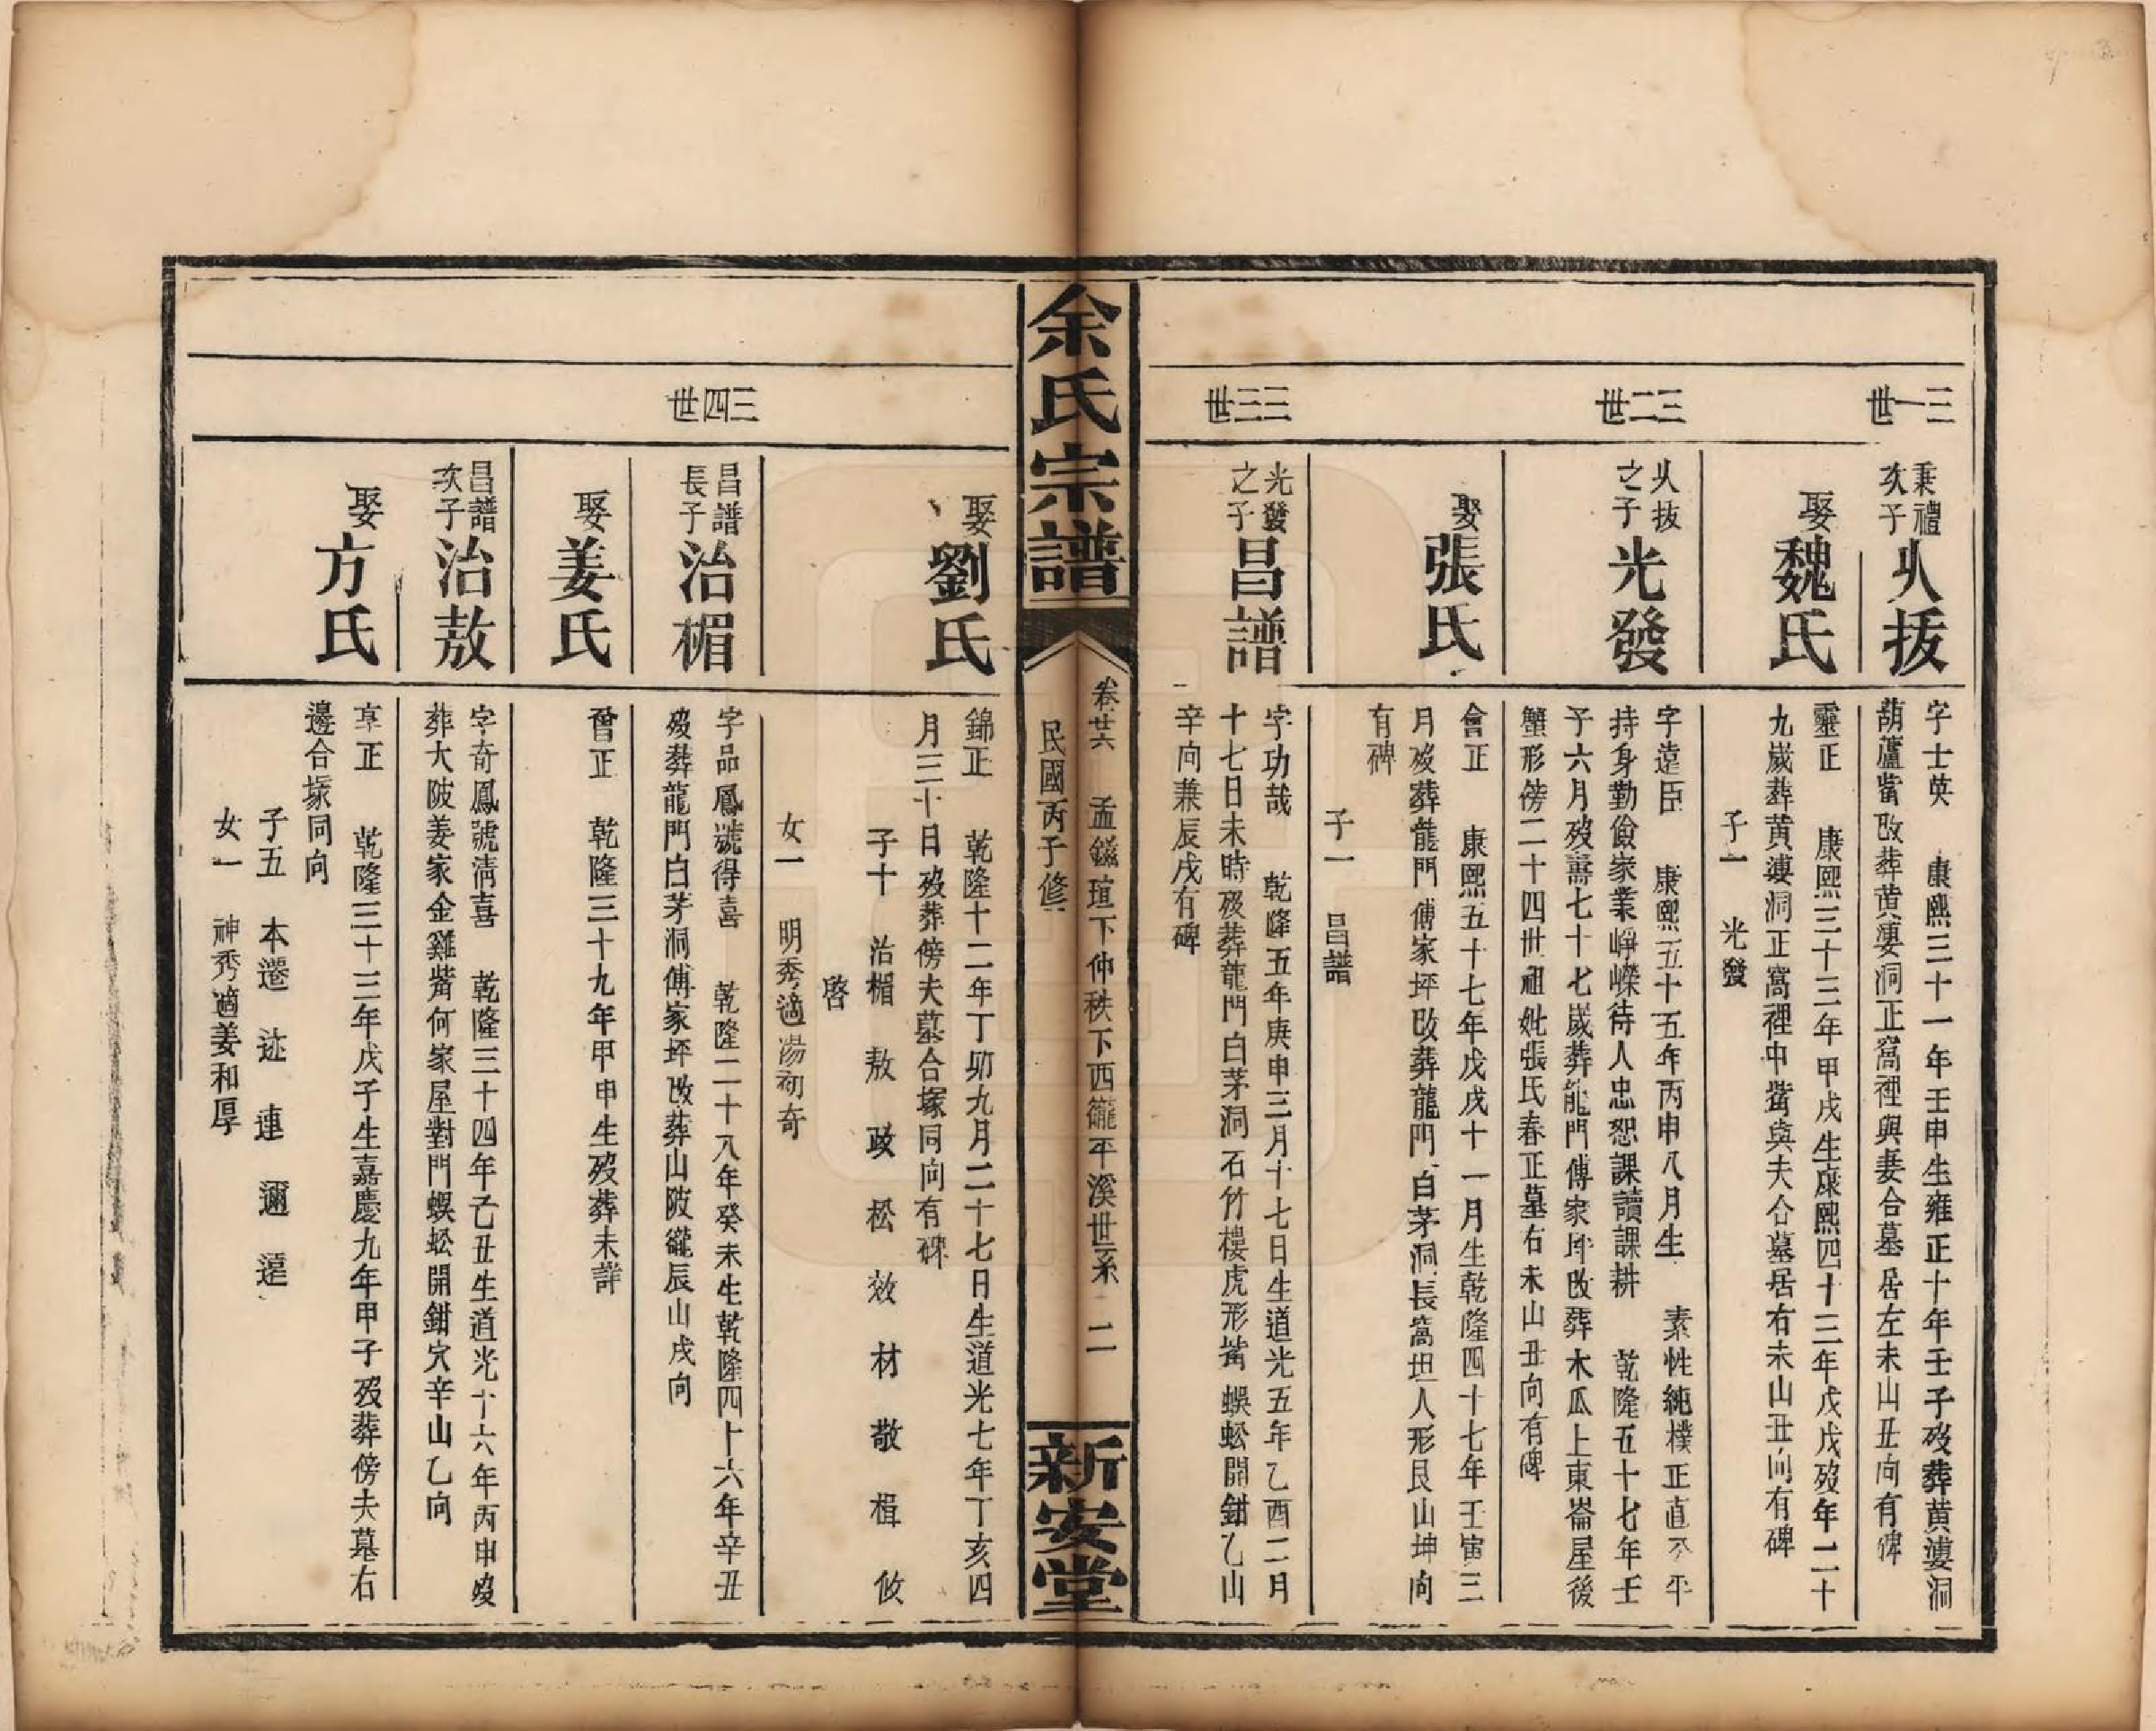 三一世
秉禮
次子
乆拔
字士英 康熙三十一年壬申生雍正十年壬子歿葬黃㜢洞
葫蘆嘴改葬黃㜢洞正窩裡與妻合墓居左未山丑向有碑
娶魏氏
靈正 康熙三十三年甲戌生康熙四十三年戊戌歿年二十
九歲葬黃㜢洞正窩裡中嘴與夫合墓居右未山丑向有碑
子一 光發
三二世
乆拔
之子
光發
字遠臣 康熙五十五年丙申八月生 素性純樸正直不平
持身勤儉家業崢嶸待人忠恕課讀課耕 乾隆五十七年壬
子六月歿壽七十七歲葬龍門傅家坪改葬木瓜上東崙屋後
蟹形傍二十四世祖妣張氏春正墓右未山丑向有碑
娶張氏
會正 康熙五十七年戊戌十一月生乾隆四十七年壬寅三
月歿葬龍門傅家坪改葬龍門白茅洞長窩坦人形艮山坤向
有碑
子一 昌譜
三三世
光發
之子
昌譜
字功哉 乾隆五年庚申三月十七日生道光五年乙酉二月
十七日未時歿葬龍門白茅洞石竹樓虎形嘴蜈蚣開鉗乙山
辛向兼辰戌有碑
余氏宗譜
卷廿六 孟鎡瑄下仲秩下西龍平溪世系 二
民國丙子修
新安堂
娶劉氏
錦正 乾隆十二年丁卯九月二十七日生道光七年丁亥四
月三十日歿葬傍夫墓合塚同向有碑
子十 治楣 敖 政 松 效 材 敬 楫 攸
啓
女一 明秀適湯初奇
三四世
昌譜
長子
治楣
字品鳳號得喜 乾隆二十八年癸未生乾隆四十六年辛丑
歿葬龍門白茅洞傅家坪改葬山陂龍辰山戌向
娶姜氏
曾正 乾隆三十九年甲申生歿葬未詳
昌譜
次子
治敖
字奇鳳號清喜 乾隆三十四年己丑生道光十六年丙申歿
葬大陂姜家金雞嘴何家屋對門蜈蚣開鉗穴辛山乙向
娶方氏
享正 乾隆三十三年戊子生嘉慶九年甲子歿葬傍夫墓右
邊合塚同向
子五 本遷 迹 連 邇 逞
女一 神秀適姜和厚